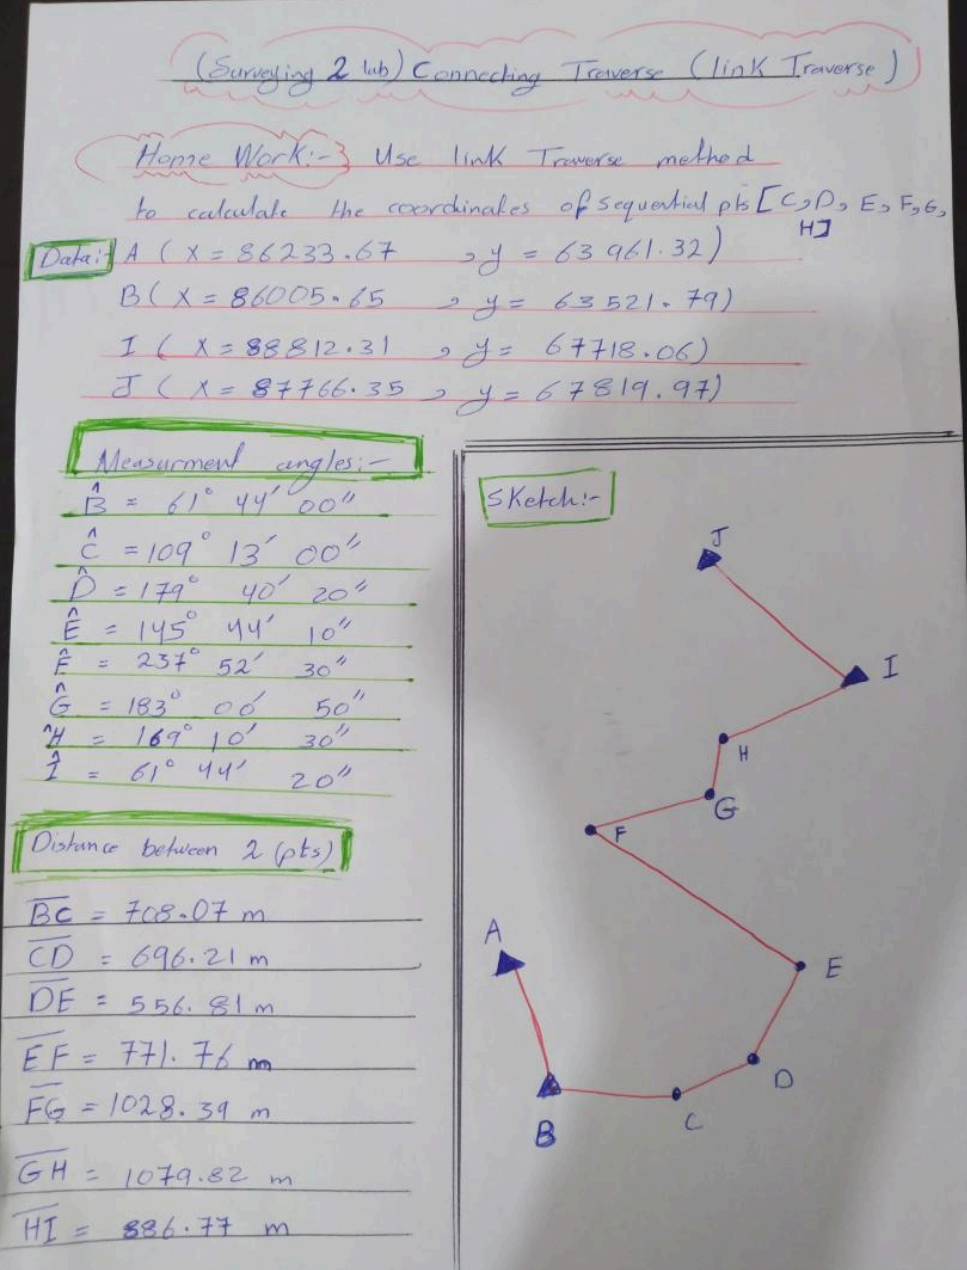 (Surveying 2 lab) Connecting Traverse (link Traverse)
Home Work:- Use link Traverse method
to calculate the coordinates of sequential pts [C, D, E, F, G,
H]
Data:- A ( X = 86233.67 , y = 63961.32)
B( X = 86005.65 , y = 63521.79)
I ( X = 88812.31 , y = 67718.06)
J ( X = 87766.35 , y = 67819.97)
Measurment angles:-
B̂ = 61° 44′ 00″
Ĉ = 109° 13′ 00″
D̂ = 179° 40′ 20″
Ê = 145° 44′ 10″
F̂ = 237° 52′ 30″
Ĝ = 183° 00′ 50″
Ĥ = 169° 10′ 30″
Î = 61° 44′ 20″
Distance between 2 (pts)
B̅C̅ = 708.07 m
C̅D̅ = 696.21 m
D̅E̅ = 556.81 m
E̅F̅ = 771.76 m
F̅G̅ = 1028.39 m
G̅H̅ = 1079.82 m
H̅I̅ = 886.77 m
Sketch:-
J
I
H
G
F
A
E
D
C
B